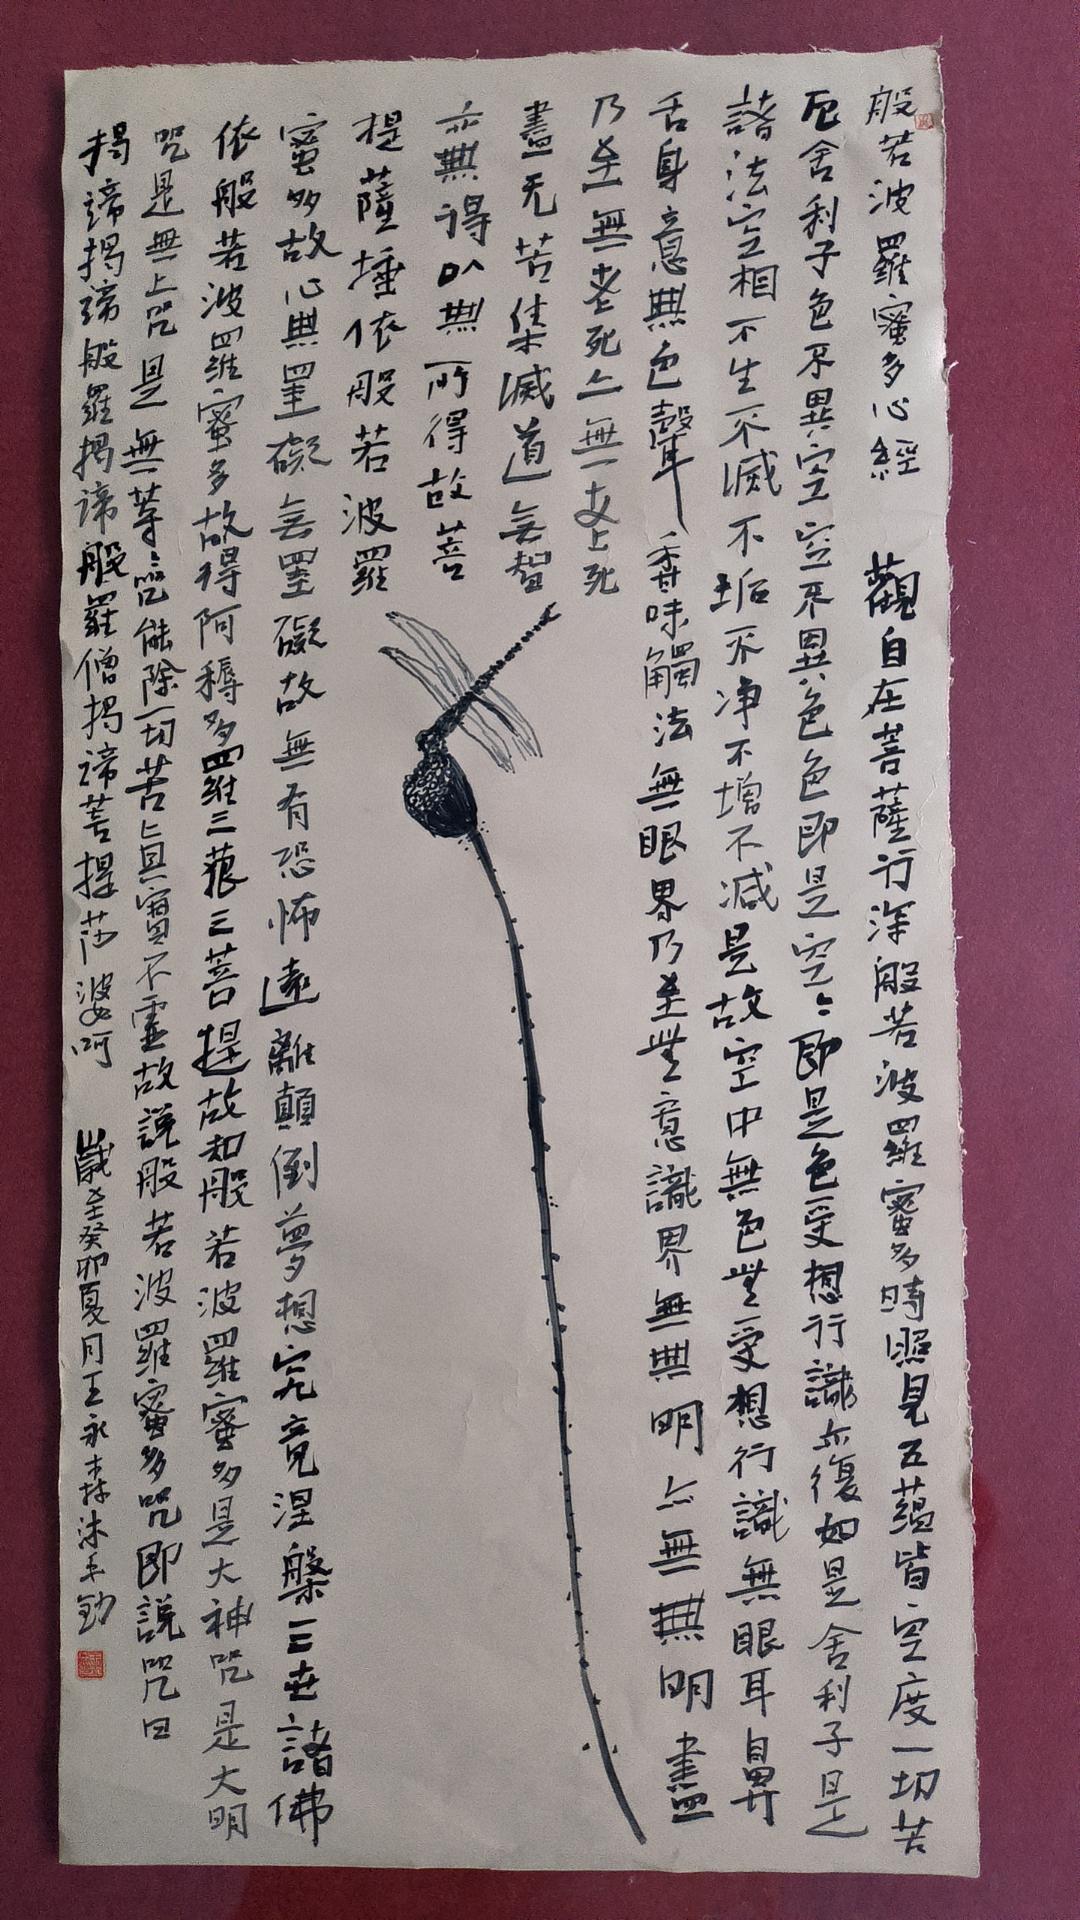 般若波羅蜜多心經 觀自在菩薩行深般若波羅蜜多時照見五蘊皆空度一切苦
厄舍利子色不異空空不異色色即是空〻即是色受想行識亦復如是舍利子是
諸法空相不生不滅不垢不净不增不减是故空中無色無受想行識無眼耳鼻
舌身意無色聲香味觸法無眼界乃至無意識界無無明亦無無明盡
乃至無老死亦無老死
盡无苦集滅道無智
亦無得以無所得故菩
提薩埵依般若波羅
蜜多故心無罣礙無罣礙故無有恐怖遠離顛倒夢想究竟涅槃三世諸佛
依般若波羅蜜多故得阿耨多羅三藐三菩提故知般若波羅蜜多是大神咒是大明
咒是無上咒是無等〻咒能除一切苦真實不虛故説般若波羅蜜多咒即説咒曰
揭諦揭諦般羅揭諦般羅僧揭諦菩提莎婆呵 歲至癸卯夏月王永森沐手鈔